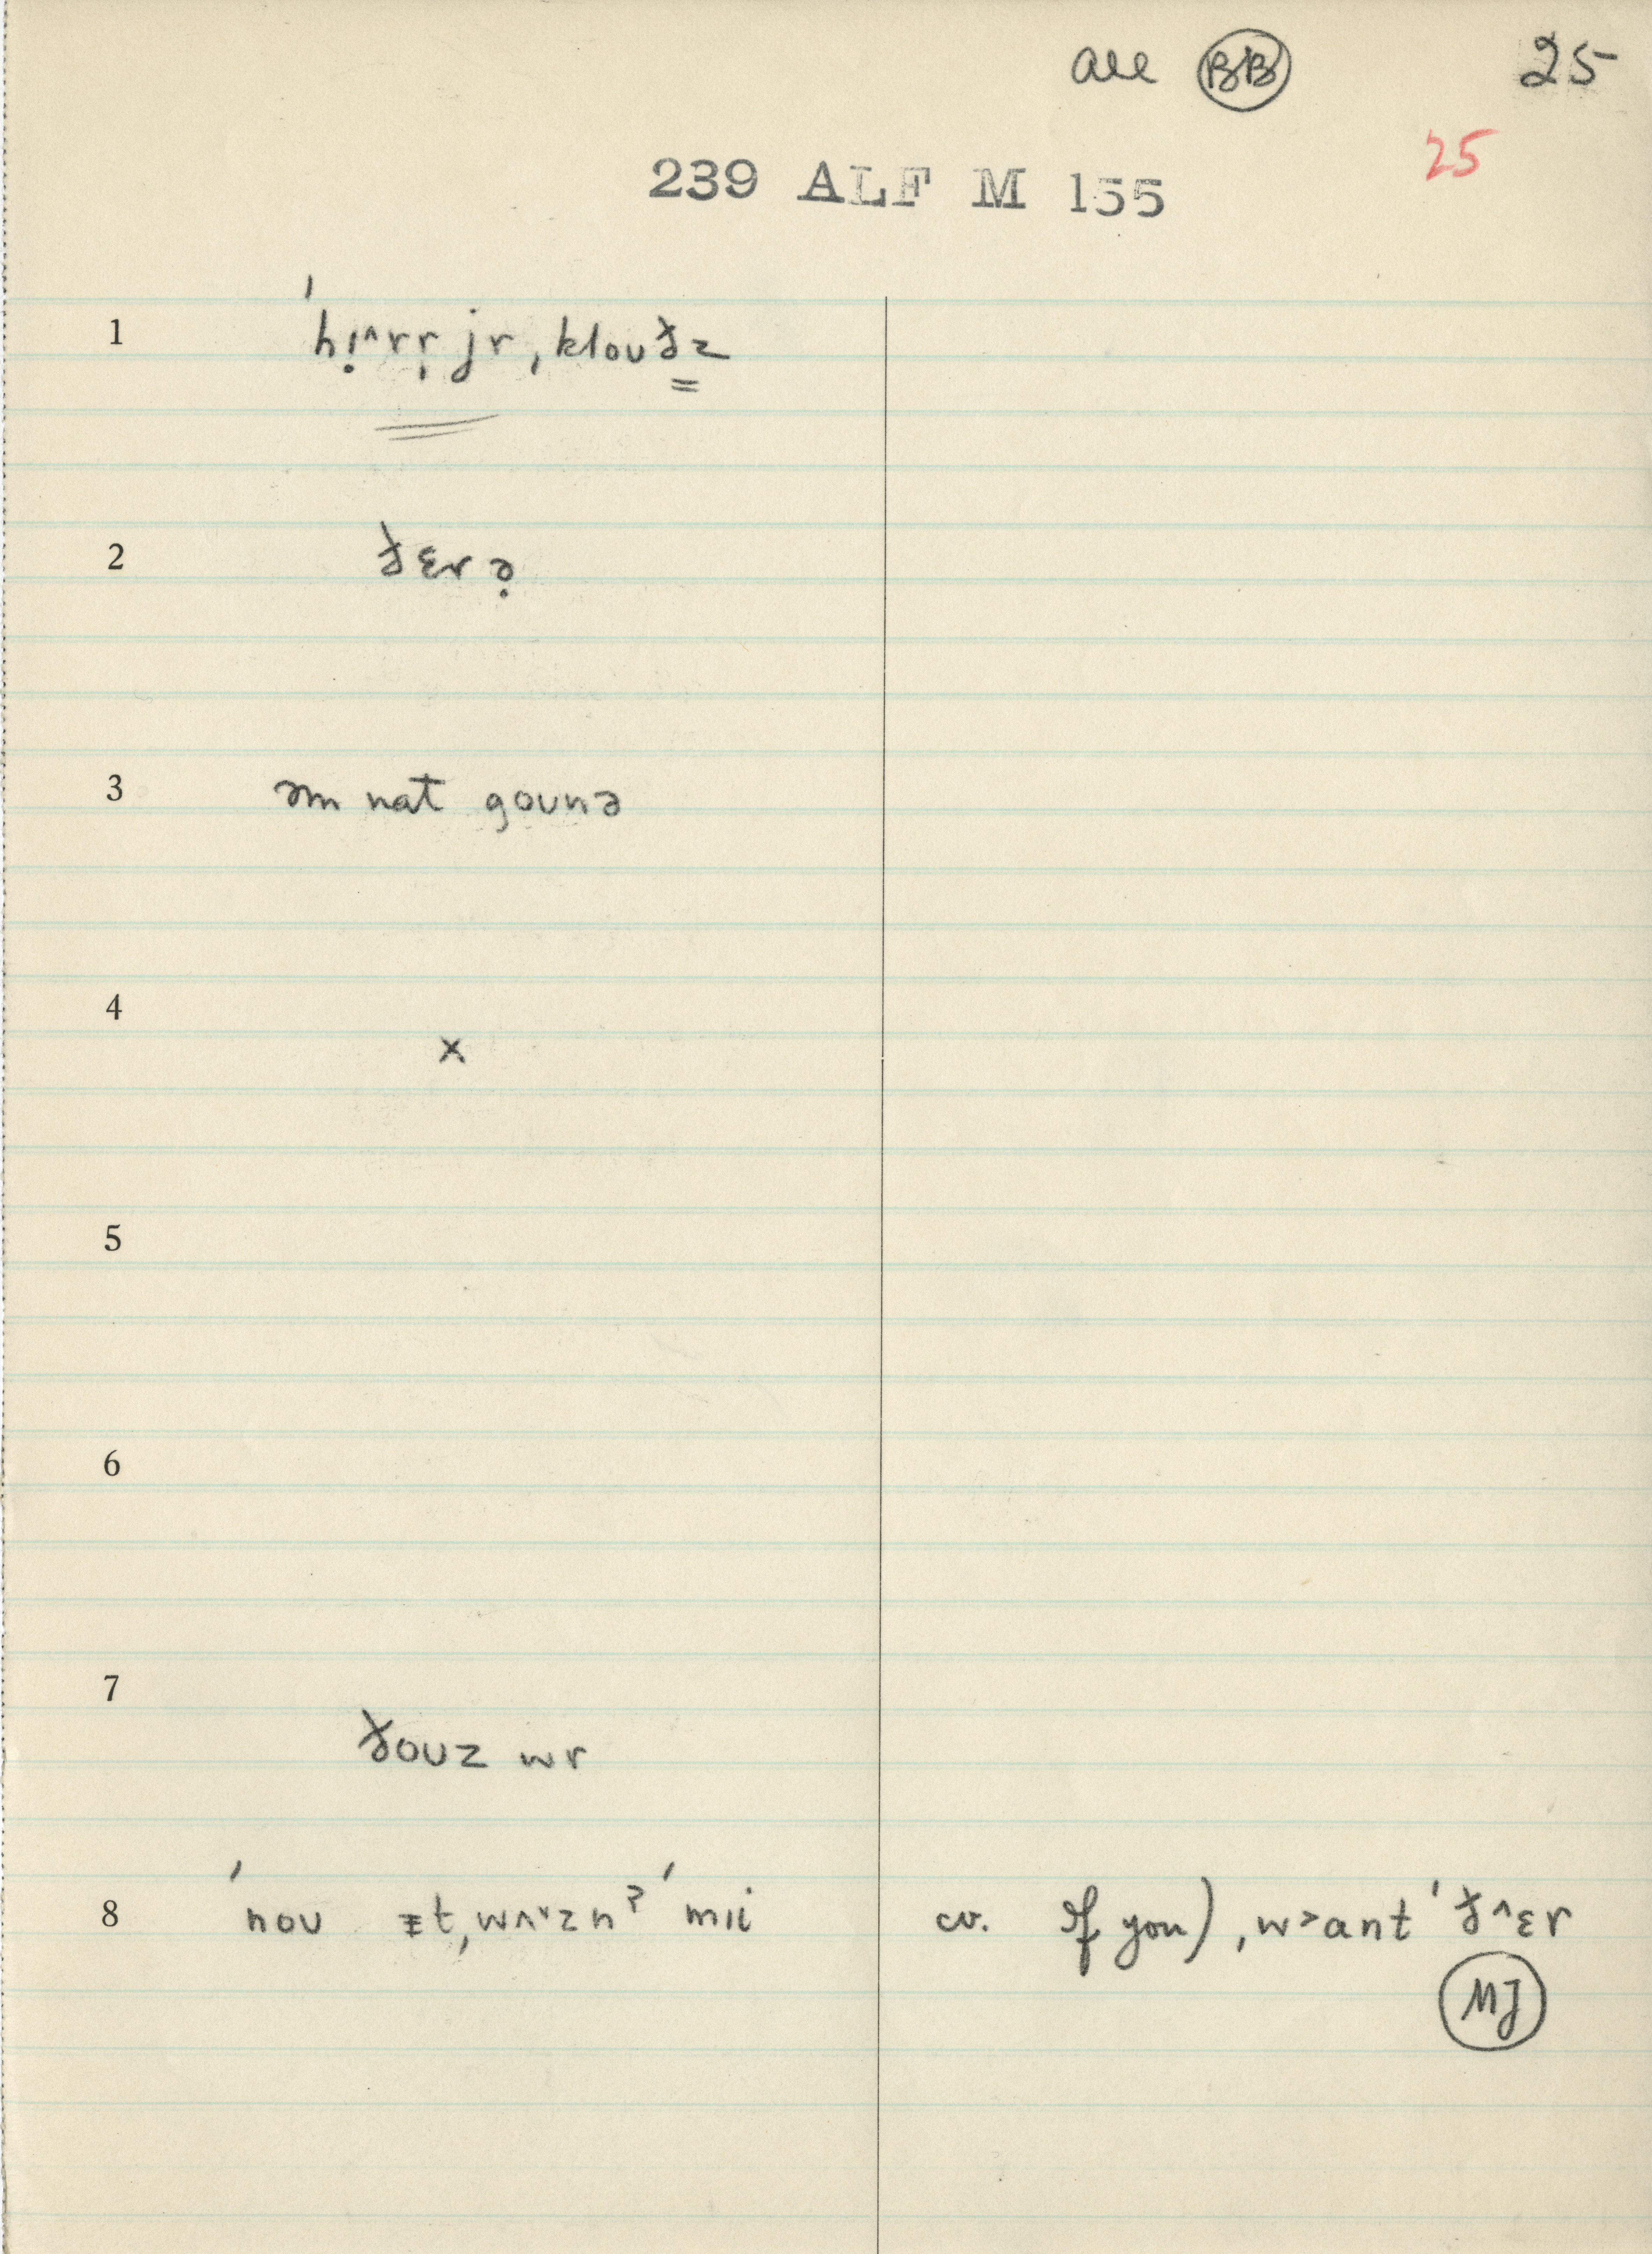 all BB 25
25
239 ALF M 155
1 ˈhɪ̣^rr̩ jr ˌklouðz
2 ðɛrə̣
3 əm nat gounə
4 x
5
6
7 ðouz wr
8 ˈnou ɪt ˌwʌ˅znˀ ˈmɪi cv. If you) ˌw>ant ˈð^ɛr
MJ